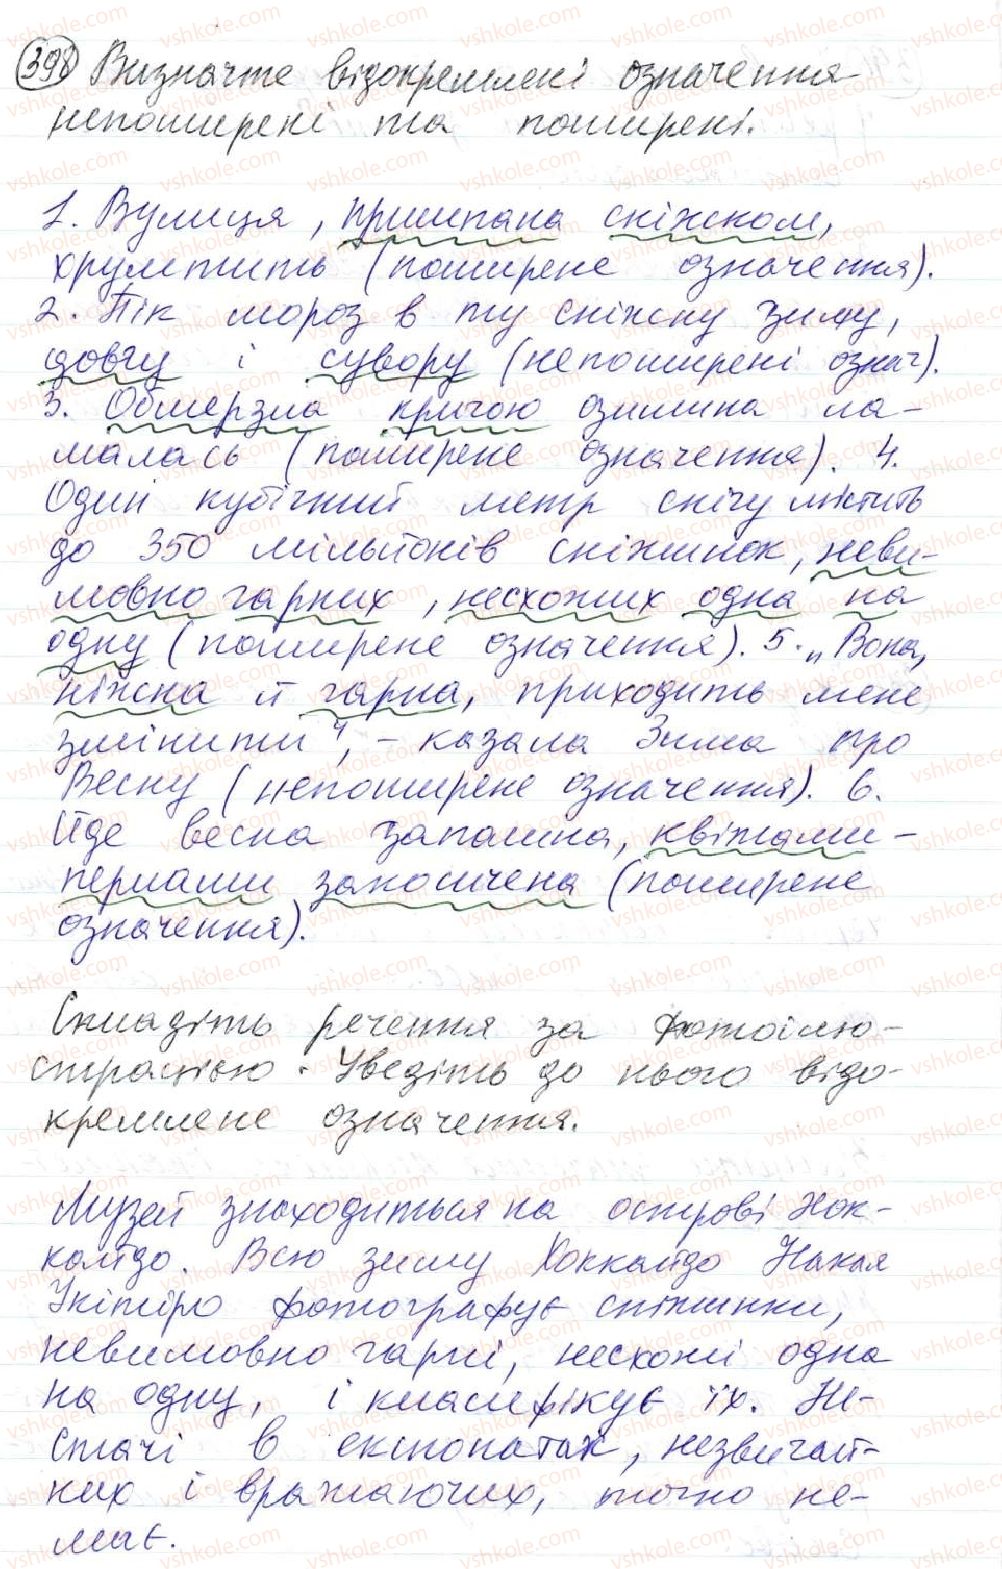 398 Визначте відокремлені означення
непоширені та поширені.
1. Вулиця, притрапа сніжком,
хрумтить (поширене означення).
2. Пік мороз в ту сніжну зиму,
довгу і сувору (непоширені означ).
3. Обмерзла кригою озимина ла-
малась (поширене означення). 4.
Один кубічний метр снігу містить
до 350 мільйонів сніжинок, неви-
мовно гарних, несхожих одна на
одну (поширене означення). 5. „Вона,
ніжна й гарна, приходить мене
змінити", - казала Зима про
Весну (непоширене означення). 6.
Йде весна запашна, квітами-
перлами закосичена (поширене
означення).
Складіть речення за фотоілю-
страцією. Уведіть до нього відо-
кремлене означення.
Музей знаходиться на острові Хок-
кайдо. Всю зиму Хоккайдо Накая
Укітіро фотографує сніжинки,
невимовно гарні, несхожі одна
на одну, і класифікує їх. Не-
стачі в експонатах, незвичай-
них і вражаючих, точно не-
має.